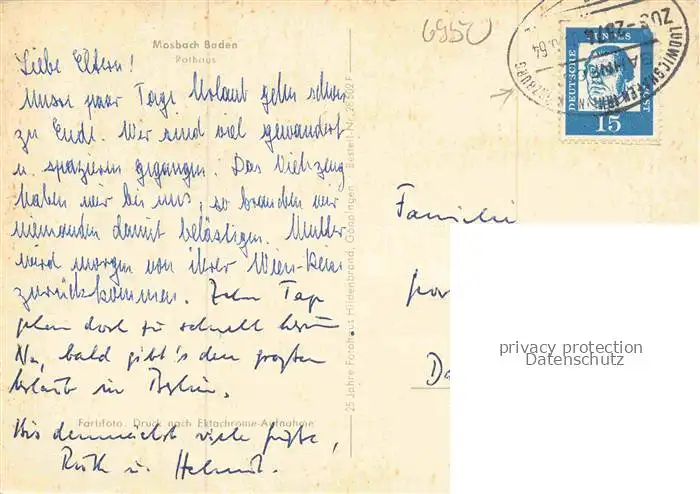 Mosbach Baden
Rathaus
6950
Liebe Eltern!
Unsre paar Tage Urlaub gehn schon
zu Ende. Wir sind viel gewandert
u. spazieren gegangen. Das Viehzeug
haben wir bei uns, so brauchen wir
niemanden damit belästigen. Mutter
wird morgen von ihrer Wien-Reise
zurückkommen. Zehn Tage
gehn doch zu schnell herum.
Na, bald gibt's den großen
Urlaub in Berlin.
Bis demnächst viele Grüße,
Ruth u. Helmut.
Farbfoto. Druck nach Ektachrome-Aufnahme
25 Jahre Fotohaus Hildenbrand, Göppingen Bestell-Nr.
Familie
DEUTSCHE BUNDESPOST
15
LUDWIGSHAFEN (RHEIN)
BAHNPOST
ZUG
64
privacy protection
Datenschutz